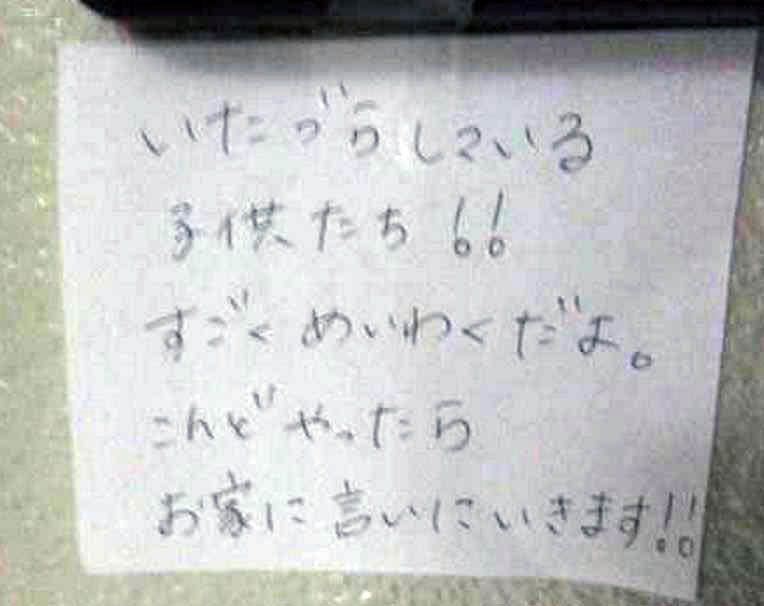 いたづらしている
子供たち!!
すごくめいわくだよ。
こんどやったら
お家に言いにいきます!!